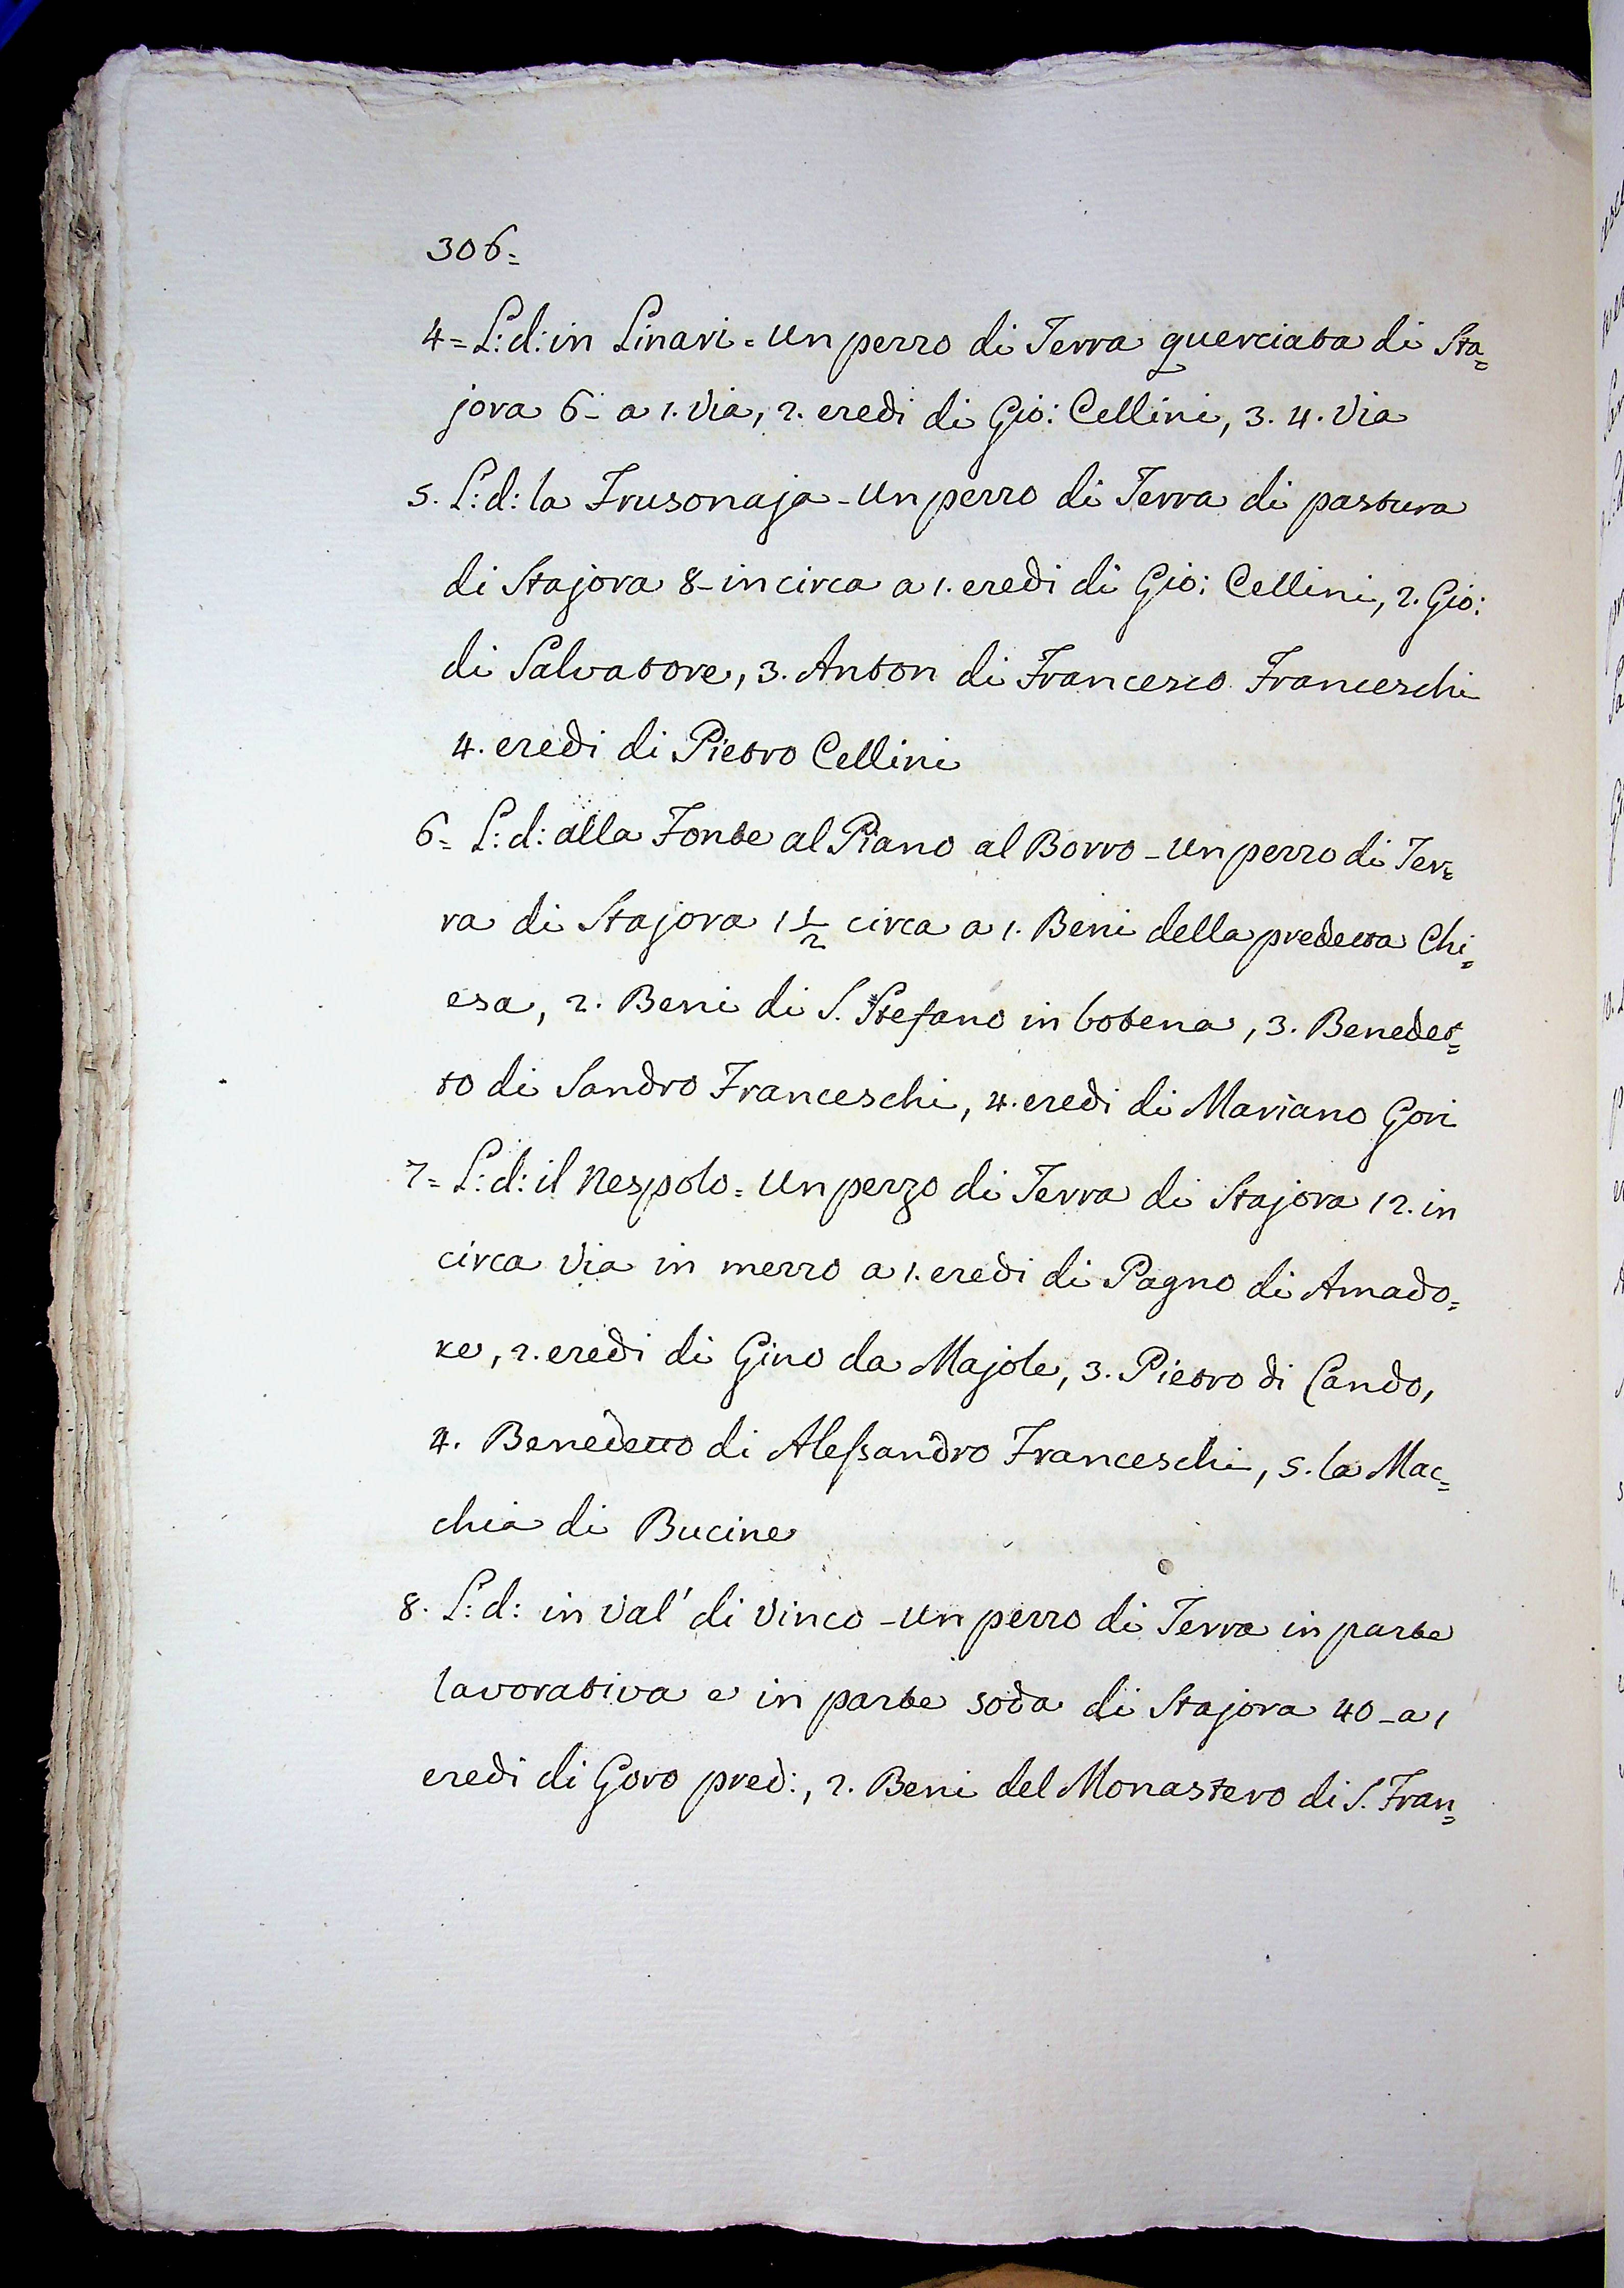 306=
4= L: d: in Linari = Un pezzo di Terra querciata di Sta=
jora 6- a 1. Via, 2. eredi di Gio: Cellini, 3. 4. Via
5. L: d: la Frusonaja - Un pezzo di Terra di pastura
di Stajora 8- in circa a 1. eredi di Gio: Cellini, 2. Gio:
di Salvatore, 3. Anton di Francesco Franceschi
4. eredi di Pietro Cellini
6= L: d: alla Fonte al Piano al Borro - Un pezzo di Ter=
ra di Stajora 1 1/2 circa a 1. Beni della predetta Chi=
esa, 2. Beni di S. Stefano in bobena, 3. Benedet=
to di Sandro Franceschi, 4. eredi di Mariano Gori
7= L: d: il Nespolo = Un pezzo di Terra di Stajora 12. in
circa Via in mezzo a 1. eredi di Pagno di Amado=
re, 2. eredi di Gino da Majole, 3. Pietro di Cando,
4. Benedetto di Alessandro Franceschi, 5. la Mac=
chia di Bucine
8. L: d: in Val' di Vinco - Un pezzo di Terra in parte
lavorativa e in parte soda di Stajora 40 - a 1
eredi di Goro pred:, 2. Beni del Monastero di S. Fran=